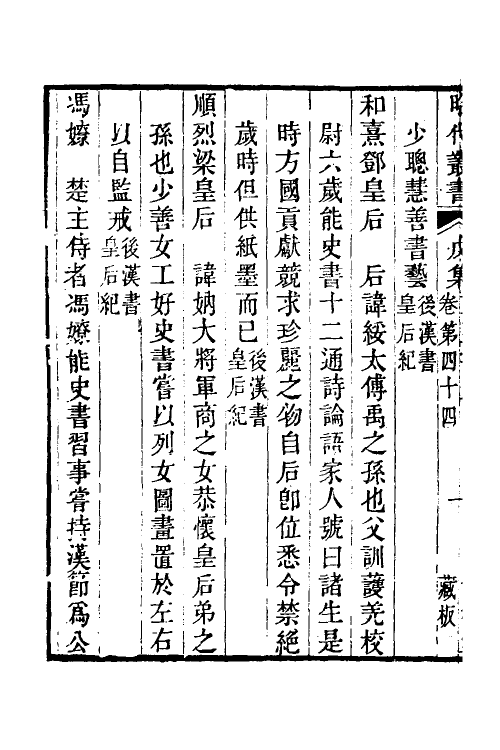 昭代叢書 戊集 卷第四十四 一 藏板
少聰慧善書藝後漢書皇后紀
和熹鄧皇后 后諱綏太傅禹之孫也父訓護羌校
尉六歲能史書十二通詩論語家人號曰諸生是
時方國貢獻競求珍麗之物自后卽位悉令禁絕
歲時但供紙墨而已後漢書皇后紀
順烈梁皇后 諱妠大將軍商之女恭懷皇后弟之
孫也少善女工好史書嘗以列女圖畫置於左右
以自監戒後漢書皇后紀
馮嫽 楚主侍者馮嫽能史書習事嘗持漢節爲公